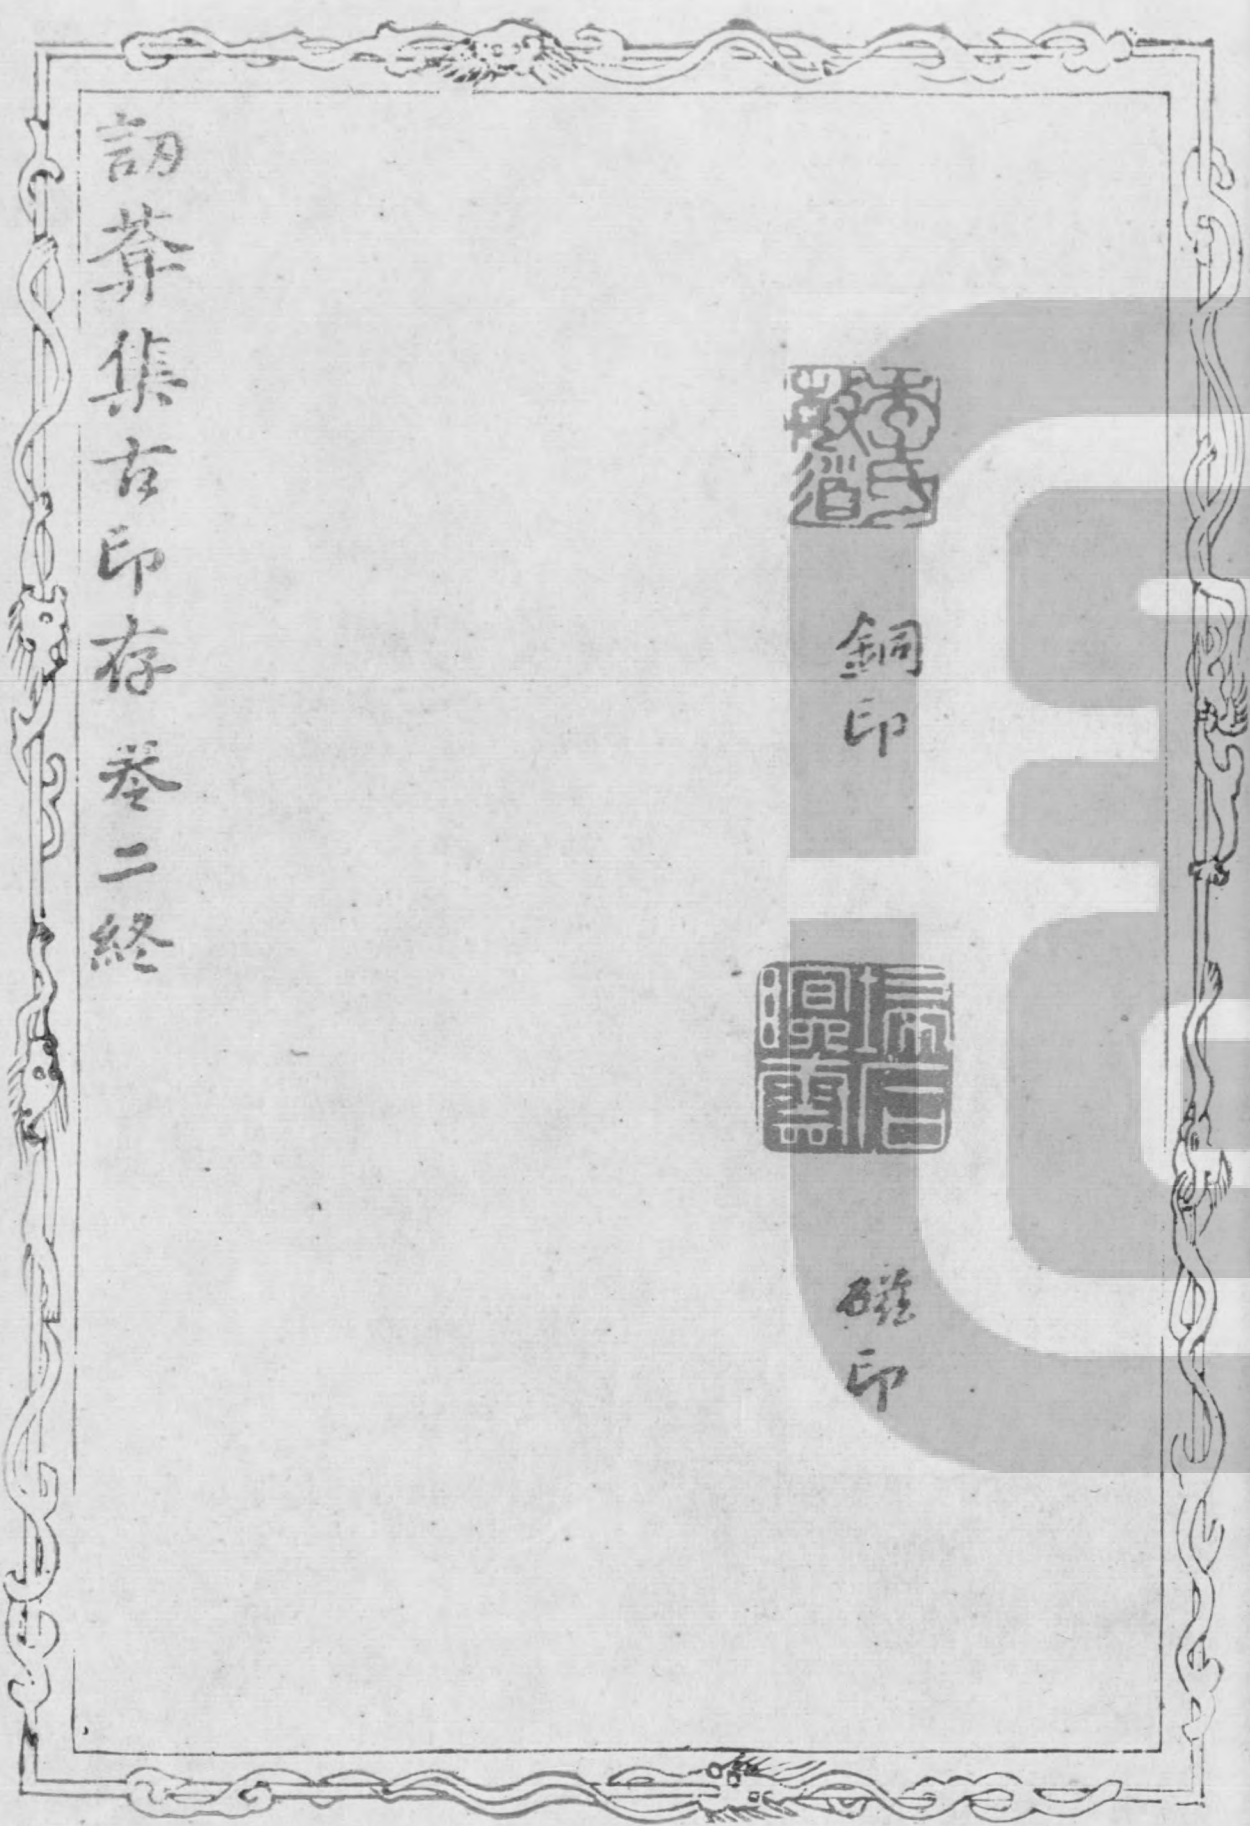 銅印
磁印
訒葊集古印存卷二終